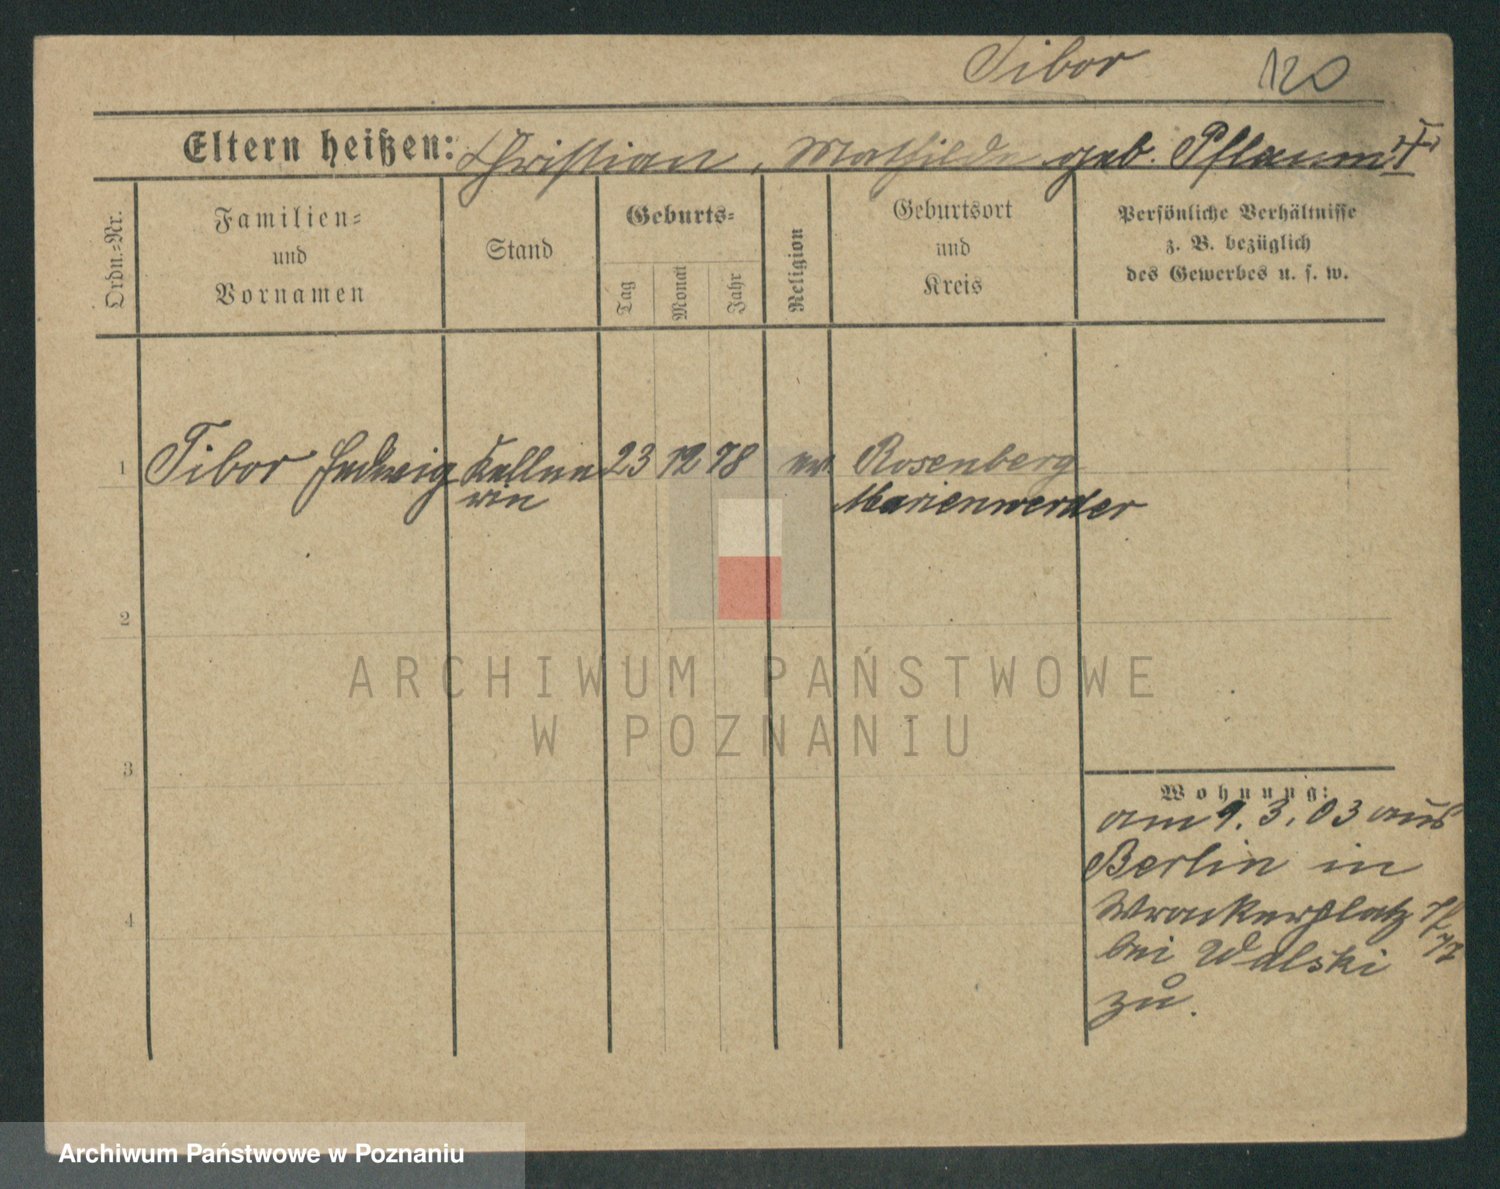 Tibor 120
Eltern heißen: Christian, Mathilde geb. Pflaum
Ordn.=Nr.
Familien=
und
Vornamen
Stand
Geburts=
Tag
Monat
Jahr
Religion
Geburtsort
und
Kreis
Persönliche Verhältnisse
z. B. bezüglich
des Gewerbes u. s. w.
1 Tibor Hedwig Kellne 23 12 78 ev. Rosenberg
rin Marienwerder
2
ARCHIWUM PAŃSTWOWE
W POZNANIU
3
Wohnung:
am 9. 3. 03 aus
Berlin in
4 Wronkerplatz
bei Walski
zu.
Archiwum Państwowe w Poznaniu